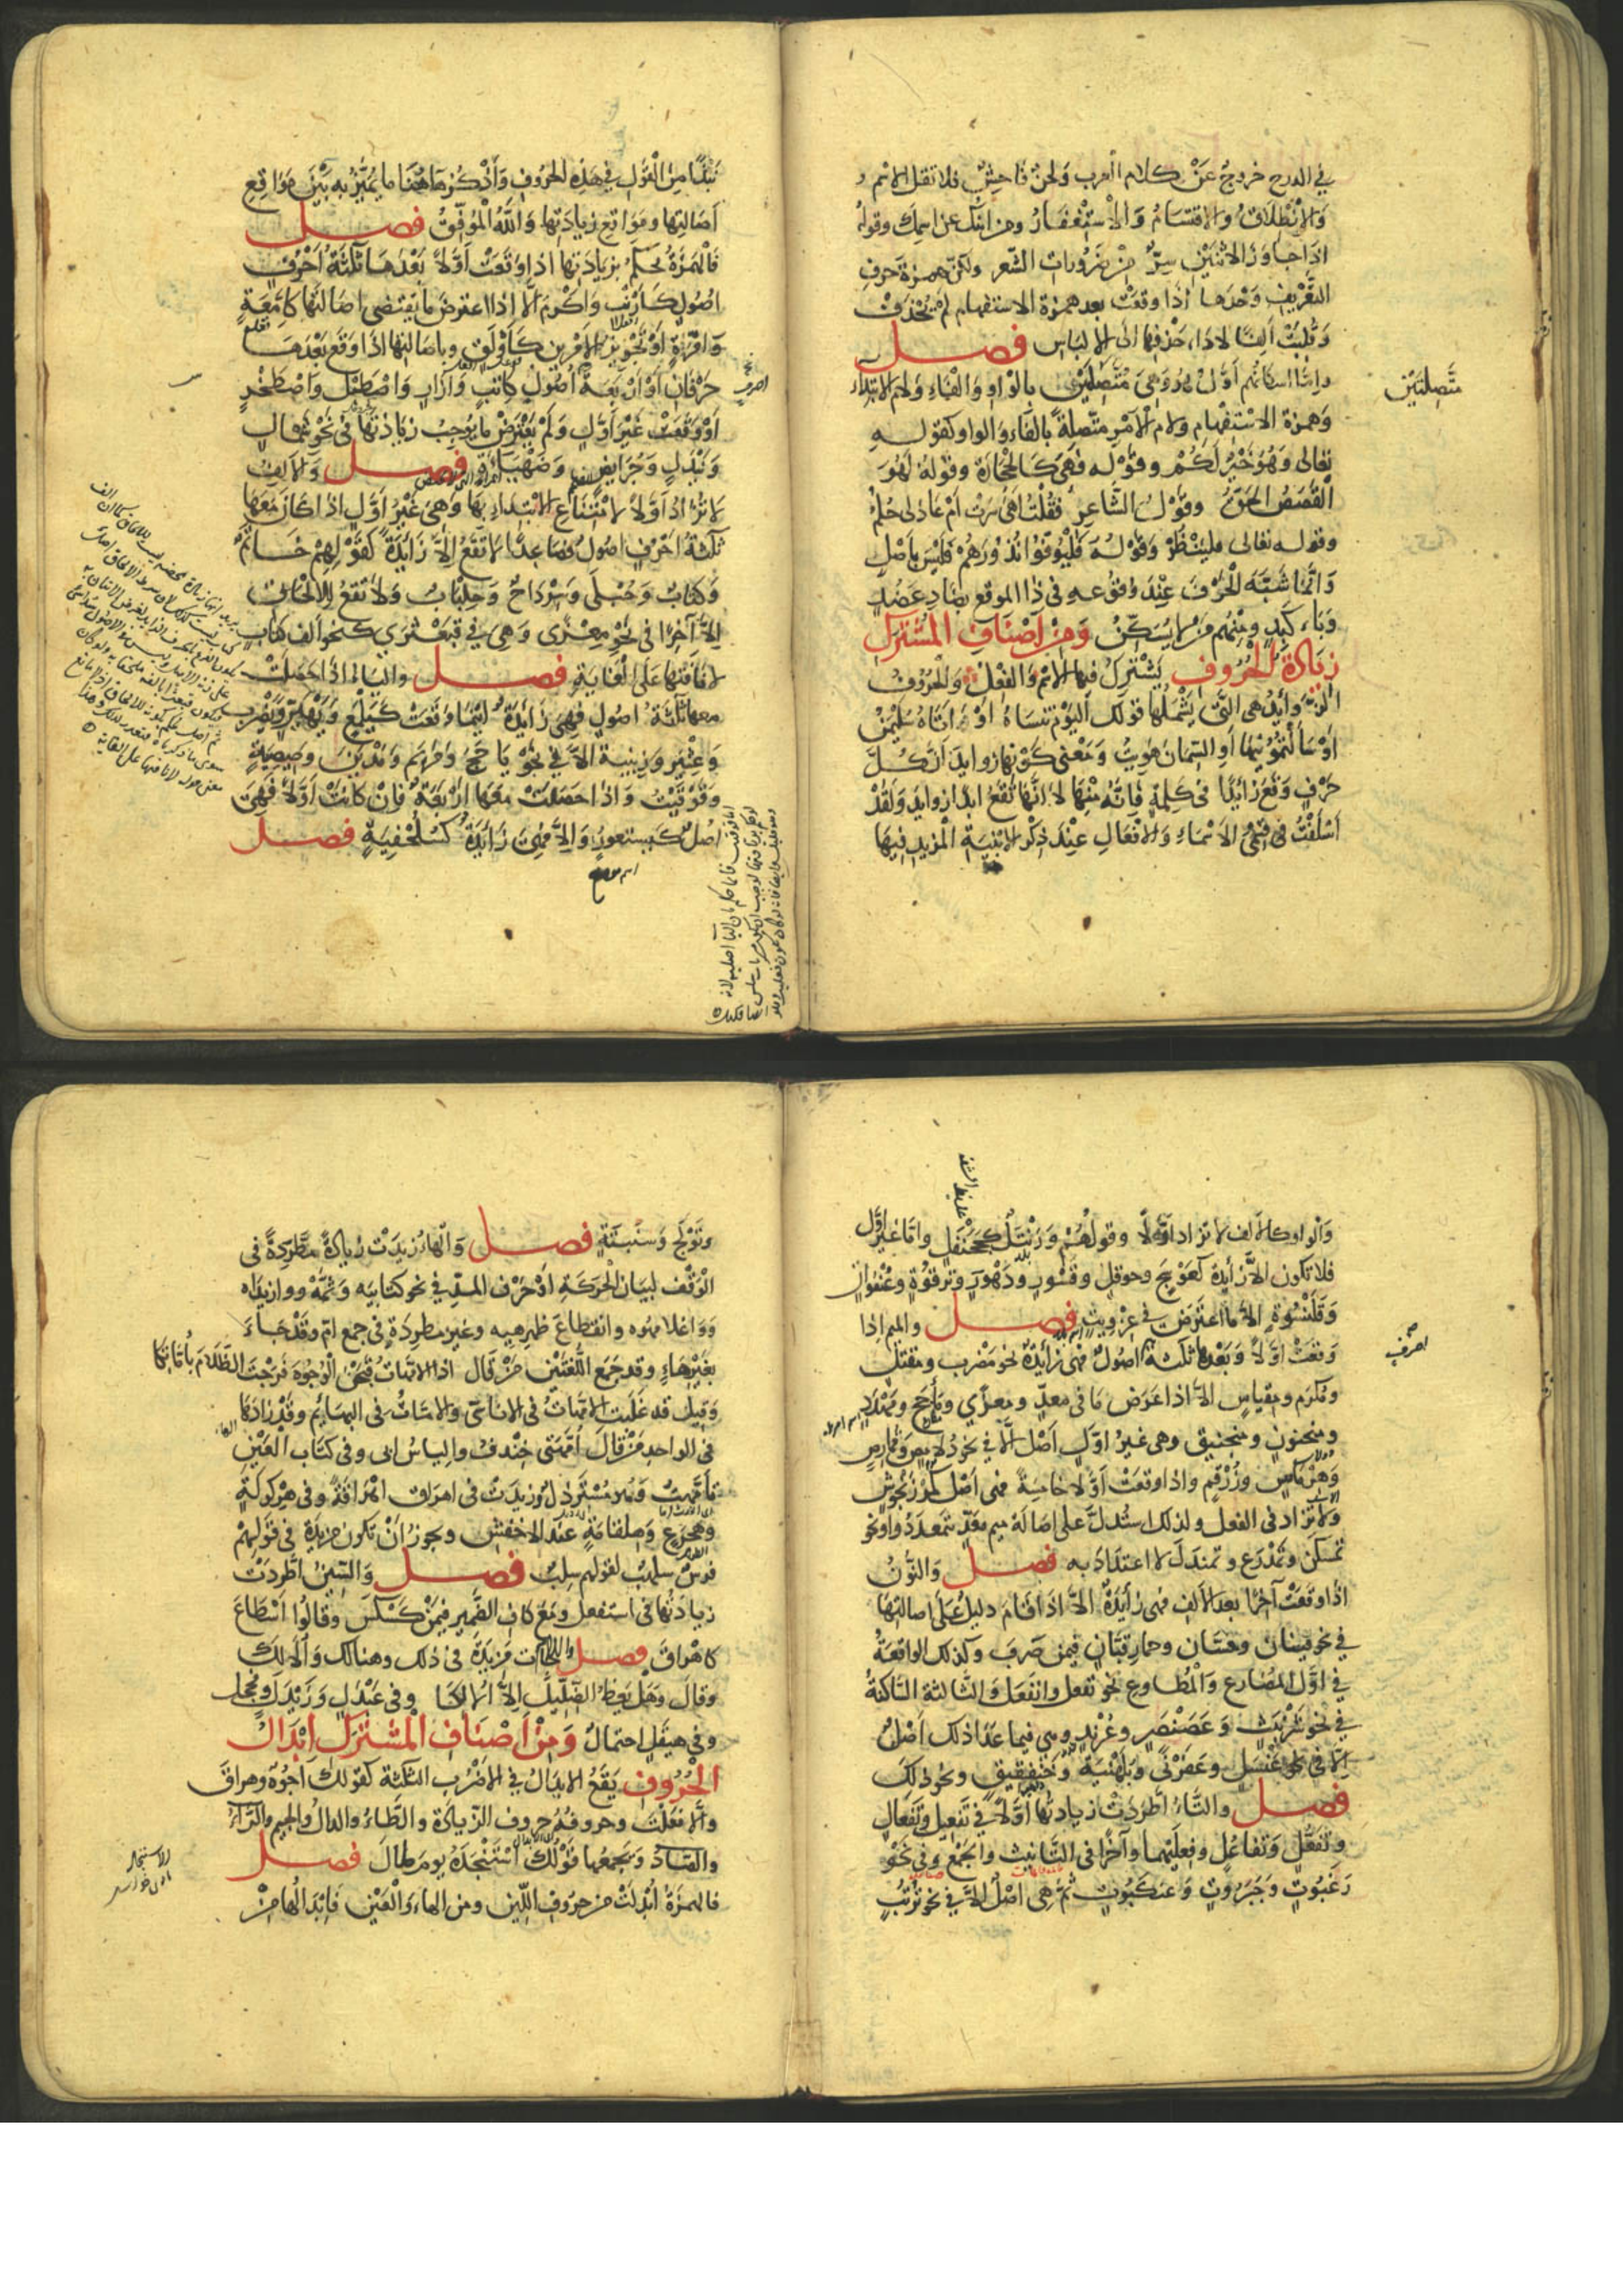 في الدرج خروج عَنْ كلام العرب ولحنٌ فَاحِشٌ فلا تقل الاسم و
وَالاِنْطِلَاقُ والاِقتسَامُ وَالاْسْتِغْفَارُ ومن ابنك وعن اسمِكَ وقوله
اذا جاوَزَ الاثْنَيْنِ سِرٌّ مِنْ ضَرُورات الشّعرِ ولكنّ همزةَ حَرفِ
التَّعْرِيفِ وَحْدَها اذَا وقعَتْ بعد همزة الاستفهام لم تُحْذَفْ
وَقُلِبَتْ أَلِفًا لاداء حَذْفِها الى الالبَاسِ فصل
واِمَّا اسكانُهم أوَّلَ هُوَ وَهِيَ مُتَّصِلَتَيْنِ بالْوَاوِ وَالْفَاءِ وَلام الابتداء
متَّصِلتَيْنِ
وَهمزة الاسْتفهَامِ ولام الْأَمْرِ متّصلةً بالفَاءِ وَالواو كقوله
تعالى وَهُوَ خَيْرٌ لَكُمْ وقَوْله فَهِيَ كَالْحِجَارَة وقولهُ لَهُوَ
الْقَصَصُ الحَقُّ وقوْلُ الشَّاعِرِ فَقُلْتُ أَهْيَ سَرَتْ أمْ عَادَنِى حُلُمُ
وقوله تعالى فلْيَنْظُرْ وَقَوْلُه وَلْيُوفُوا نُذُورَهُمْ فلَيْسَ بِأَصْلٍ
وَانَّما شُبِّهَ الْحَرْفُ عِنْدَ وُقُوعِهِ فى ذا الموقعِ بضَادِ عَضُدٍ
وَبَاء كَبِدٍ ومِنْهُم مَنْ لا يُسَكِّنُ وَمِنْ اَصْنَافِ المُشْتَرَكِ
زِيَادَةُ الْحُرُوفِ يَشْتَرِكُ فيها الاسْمُ وَالفِعْلُ وَالْحُرُوفُ
الزَّوَايدُ هى التى يَشْمَلُها قولك اَليَوْمَ تَنْسَاهُ اوْ أتَاهُ سُلَيْمٰنُ
اوْ سَأَلْتُمُونِيهَا أوِ السِّمَانَ هَوِيتُ وَمَعْنى كَوْنِها زوايدَ اَنَّ كُلَّ
حَرْفٍ وَقَعَ زَائِدًا فى كَلِمَةٍ فَاِنَّهُ مِنْهَا لا انَّها تَقَعُ ابدًا زوايدَ وَلَقَدْ
اَسْلَفْتُ فى قِسْمَىِ الاَسْمَاءِ وَالاَفْعَالِ عِنْدَ ذِكْرِ الابْنِيَةِ المَزِيدِ فيها
نُبَذًا مِنَ الْقَوْلِ في هذه الحروفِ وَأَذْكُرُ هَاهُنَا ما يُمَيَّزُ به بَيْنَ مَوَاقِعِ
أصَالتِها ومَوَاقِعِ زِيَادَتِها وَاللّٰهُ الْمُوَفِّقُ فصل
فَالْهَمْزَةُ يُحكَمُ بزيَادَتِها اذا وَقَعَتْ أَوّلاً بَعْدَهَا ثَلٰثَةُ أحْرُفٍ
اُصُولٍ كَأَرْنَبٍ وَاَكْرَمَ اِلَّا اذا اعترضَ ما يَقتضى اصَالتَها كَاِمَّعَةٍ
وَاِمَّرَةٍ اَوْ تَجْوِيزَ الاَمْرينِ كَأَوْلَقٍ وبِاصَالتِها اذَا وَقَعَ بَعْدَهَا
حَرْفَانِ اَوْ أَرْبَعَةٌ أُصُولٌ كَاِتْبٍ وَاِزَارٍ وَاِصْطَبْلٍ وَاِصْطَخْرٍ
اَوْ وَقَعَتْ غَيْرَ أوَّلٍ وَلَمْ يَعْتَرِضْ ما يُوجِبُ زِيَادَتَها فى نَحْوِ شَمْأَلٍ
وَنِئْدِلٍ وَجُرَائِضٍ وَضَهْيَاءَةٍ فصل وَالاَلِفُ
لا تُزَادُ اَوّلاً لامْتِنَاعِ الاِبْتِدَاءِ بها وَهِىَ غَيْرَ أوَّلٍ اذا كَانَ مَعَهَا
ثَلٰثَةُ اَحْرُفٍ اصُولٌ فصَاعِدًا لا تَقَعُ إِلَّا زَائِدَةً كَقَوْلِهِمْ خَاتَمٌ
وَكِتَابٌ وَحُبْلَى وَسِرْدَاحٌ وَحِلِبْلَابٌ وَلا تَقَعُ لِلاِلْحَاقِ
إِلَّا آخِرًا فى نَحْوِ مِعْزًى وَهِىَ في قَبَعْثَرَى كنحو أَلفِ كتابٍ
لاِنَافَتِها عَلَى الْغَايَةِ فصل والياء اذا حَصَلَتْ
معها ثلٰثةُ اصُولٍ فهِىَ زَائِدَةٌ اَيْنَمَا وَقَعَتْ كَيَلْمَعٍ وَيَهْيَرٍّ وَيَضْرِبُ
وَعِثْيَرٍ وَزِبْنِيَةٍ الاَّ فى نَحْوِ يَأجَجَ وَمَرْيَمَ وَمَدْيَنَ وصِيصِيَةٍ
وَقَوْقَيْتُ وَاذَا حَصَلَتْ مَعَها اَرْبَعَةٌ فَاِنْ كَانَتْ أَوَّلاً فَهِىَ
اَصْلٌ كَيَستعورٍ وَإِلاَّ فَهِىَ زَائِدَةٌ كَسُلَحْفِيَةٍ فصل
اسم موضع
وَالْواو كالألف لا تزاد اَوَّلاً وقولُهُمْ وَرَنْتَلٌ كجَحَنْفَلٍ واَمَّا غيْرَ اَوَّلٍ
فلا تكون الاَّ زَائِدةً كعَوْسَجٍ وحوقلٍ وقَسْوَرٍ ودَهْوَرٍ وتَرْقُوَةٍ وعُنْفُوانٍ
وَقَلَنْسُوَةٍ الاَّ ما اعتَرَضَ فى عِزْوِيتٍ فصل والميم اِذا
وَقعَتْ اَوّلاً وَبَعْدها ثلٰثة اُصُولٌ فهى زَائِدَةٌ نحو مَضْرِبٍ ومَقْتَلٍ
ومُكْرَمٍ ومِقياسٍ الاّ اذا عَرَضَ مَا فى مَعدٍّ ومِعزًى ومَأْجَجَ ومَهْدَدَ
ومنجنونٍ ومنجنيقٍ وهى غيرَ اوَّلٍ اَصْلٌ الَّا في نحو دُلَامِصٍ وقُمَارِصٍ
وهِرْمَاسٍ وزُرْقُمٍ واذا وقعَتْ اَوَّلا خامِسَةً فهى اَصْلٌ كَمَرْزَنْجُوشٍ
ولا تزاد فى الفعل ولذلك استُدلَّ على اصَالَةِ ميم مَعَدٍّ بتَمعْدَدُوا ونحو
تَمسْكَنَ وتَمَدْرَعَ وتمَندَلَ لا اعتدَادَ به فصل وَالنُّونُ
اذَا وَقَعَتْ آخرًا بعد الأَلفِ فهى زائِدةٌ الاَّ اذَا قَامَ دليلٌ عَلَى اصَالتِهَا
في نحو فينانٍ وحسّان وحمار قبَّانٍ فيمن صَرَفَ وكذلك الواقعَةُ
في اوَّلِ المُضَارع وَالْمُطاوِع نحو نفعل وانفَعَلَ وَالثَّالثة السَّاكنةُ
في نحو شَرَنْبَثٍ وَعَصَنْصَرٍ وعُرُنْدٍ وهى فيما عَدَا ذلك اَصْلٌ
إلَّا فى نحو عَنْسَلٍ وعَفَرْنًى وبُلَهْنِيَةٍ وخَنْفَقِيقٍ ونحو ذلكَ
فصل والتَّاءُ اطَّرَدَتْ زيادتُها اَوَّلاً فى تَفعِيلٍ وتَفعَالٍ
وتَفَعُّلٍ وَتفَاعُلٍ وفعلَيْهما وآخرًا فى التَّأنيث وَالجمْعِ وَفى نَحْوِ
رَغَبُوتٍ وَجَبَرُوتٍ وَعنكبُوتٍ ثمَّ هى اَصْلٌ الاَّ فى نحو تُرْتُبٍ
وتَوْلَجٍ وَسَنْبَتَةٍ فصل وَالْهاءُ زِيدَتْ زيَادَةً مطَّرِدَةً فى
الْوَقْفِ لبيَانِ الْحرَكَةِ اَوْ حَرْفِ المدِّ في نحو كتابيَه وَثَمَّهْ ووازيداه
وَوَاغلامهُوه وانقطاعَ ظهرِهيه وغيرَ مطرِدَةٍ فى جمع امّ وقَدْ جَاءَ
بغَيْرِ هَاءٍ وقد جَمَعَ اللُّغتَيْنِ مَنْ قال اذا الامّهاتُ قبَحْنَ الْوُجُوهَ فرَجْتَ الظَّلَامَ بأُمَّاتِكَا
وَقيلَ قد غَلَبَت الامّهَاتُ فى الاناسِىّ وَالاُمّاتُ فى البهائِمِ وقَدْ زَادَهَا
فى الواحدِ مَنْ قالَ اُمَّهَتِى خِنْدِفُ والياسُ ابى وفى كتَاب الْعَيْنِ
تأمَّهتُ وَهُوَ مُسْتَرذَلٌ وَزيدَتْ فى اهرَاقَ اهْرَاقَةً وفى هِرْكَوْلَةٍ
وهِجْرَعٍ وهِلْقَامَةٍ عندَ الاخفشِ ويجوز اَنْ تكون مزيدَة فى قولهِمْ
قرنٌ سلهبٌ لقولهم سلبٌ فصل وَالسِّينُ اطَّرَدَتْ
زيادَتُها فى استفعل ومَعَ كاف الضَّميرِ فيمَنْ كَسْكَسَ وقالُوا اَسْطَاعَ
كاَهْرَاقَ فصل واللَّامُ جاءت مَزيدَةً فى ذلك وهنالك وَاُلَالِكَ
وقالَ وَهَلْ يَعِظُ الضِّلِّيلَ الاَّ اُلَالِكَا وفى عَبْدَلٍ وزَيْدَلٍ وفَحْجَلٍ
وفى هيقلٍ احتمالٌ وَمِنْ اَصْنَافِ المُشْتَرَكِ اِبْدَالُ
الْحُرُوفِ يَقَعُ الابدَالُ فى الاَضْرُبِ الثلٰثةِ كقولِكَ اُجُوهٌ وهراقَ
واَلا فعَلْتَ وحروفُهُ حروف الزّيادة والطَّاءُ والدالُ والجيم والزَّاءُ
والصَّادُ وتَجْمَعُها قوْلُكَ اسْتَنْجَدَهُ يومَ طَالَ فصل
فالهمزَةُ أُبْدِلَتْ من حروفِ اللِّينِ ومن الهاء وَالْعَيْنِ فَاِبْدَالُها مِنْ